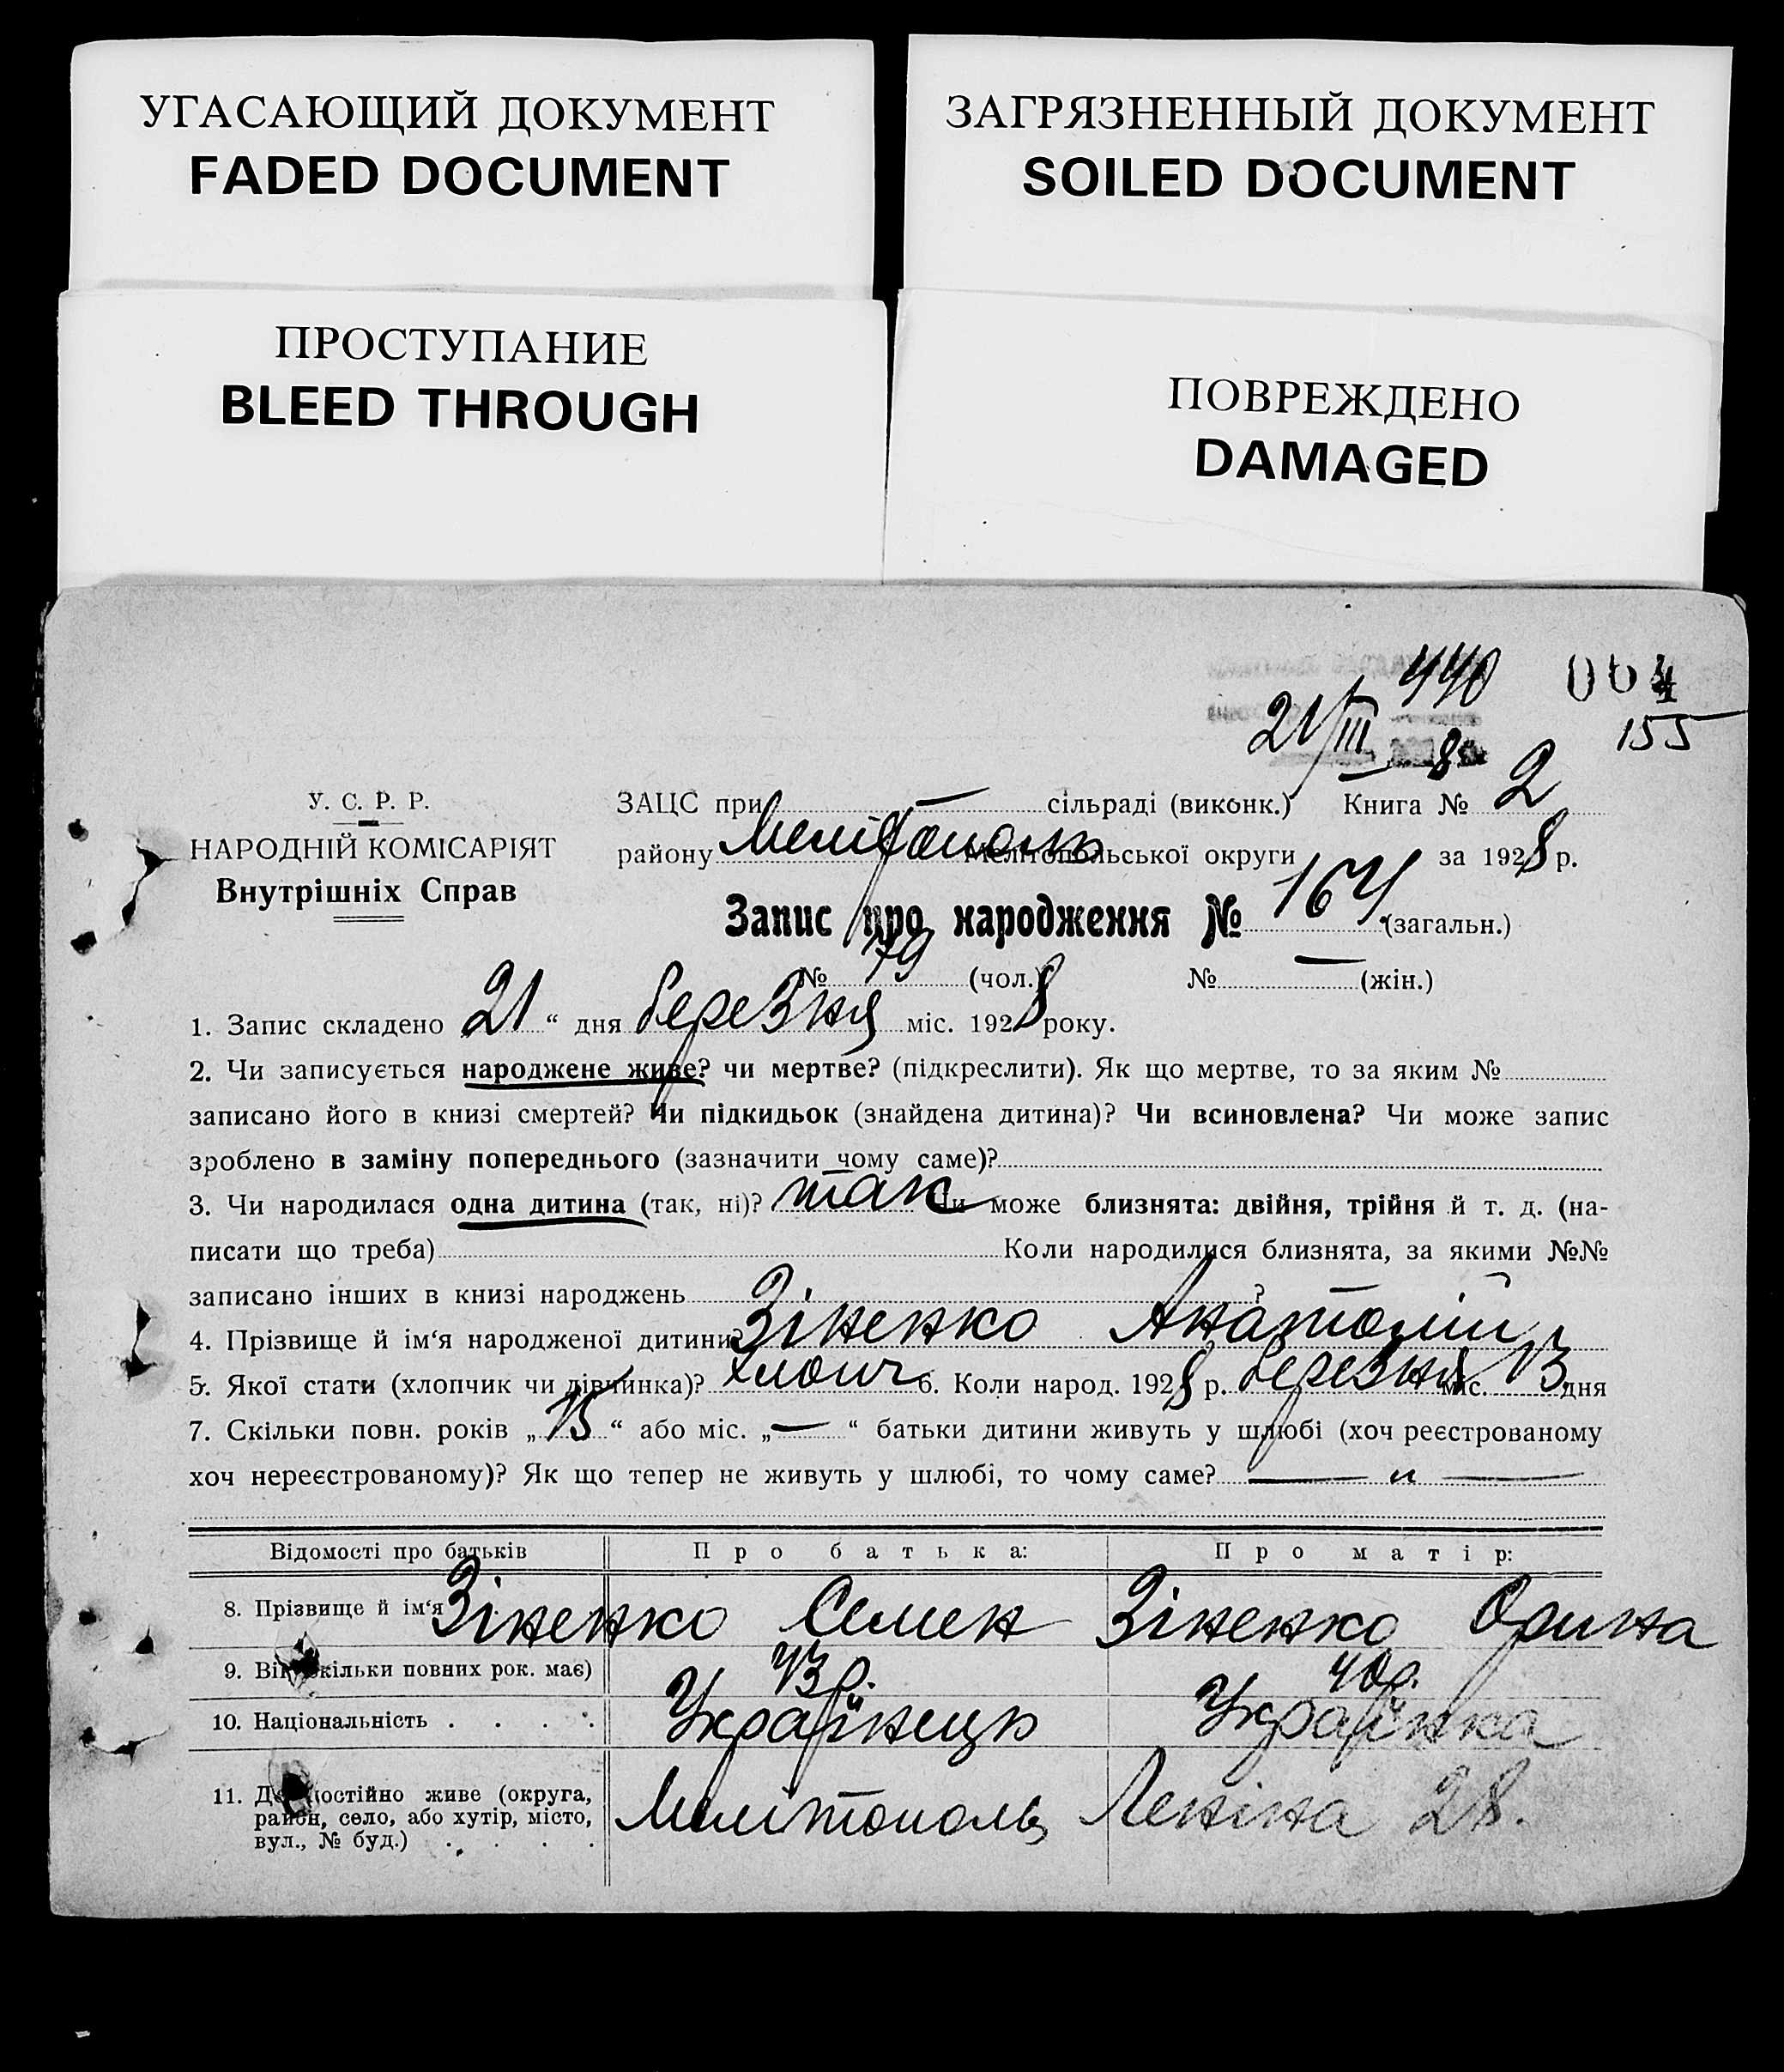 УГАСАЮЩИЙ ДОКУМЕНТ
FADED DOCUMENT
ЗАГРЯЗНЕННЫЙ ДОКУМЕНТ
SOILED DOCUMENT
ПРОСТУПАНИЕ
BLEED THROUGH
ПОВРЕЖДЕНО
DAMAGED
440
21/III 8
155
У. С. Р. Р.
НАРОДНІЙ КОМІСАРІЯТ
Внутрішніх Справ
ЗАЦС при — сільраді (виконк.) Книга № 2
району Мелітополь Мелітопольської округи за 1928 р.
Запис про народження № 164 (загальн.)
№ 79 (чол.) № — (жін.)
1. Запис складено 21 “ дня березня міс. 1928 року.
2. Чи записується народжене живе? чи мертве? (підкреслити). Як що мертве, то за яким №
записано його в книзі смертей? Чи підкидьок (знайдена дитина)? Чи всиновлена? Чи може запис
зроблено в заміну попереднього (зазначити чому саме)?
3. Чи народилася одна дитина (так, ні)? так Чи може близнята: двійня, трійня й т. д. (на-
писати що треба) Коли народилися близнята, за якими №№
записано інших в книзі народжень ?
4. Прізвище й ім‘я народженої дитини? Зіненко Анатолій
5. Якої стати (хлопчик чи дівчинка)? хлопч 6. Коли народ. 1928 р. березня міс. 13 дня
7. Скільки повн. років „ 15 “ або міс. „ — “ батьки дитини живуть у шлюбі (хоч реєстрованому
хоч нереєстрованому)? Як що тепер не живуть у шлюбі, то чому саме? — „ —
Відомості про батьків Про батька: Про матір:
8. Прізвище й ім‘я Зіненко Семен Зіненко Орина
9. Вік (скільки повних рок. має) 43 р. 40 р.
10. Національність . . . . Українець Українка
11. Де постійно живе (округа,
район, село, або хутір, місто,
вул., № буд.) . . . . Мелітополь Леніна 28.